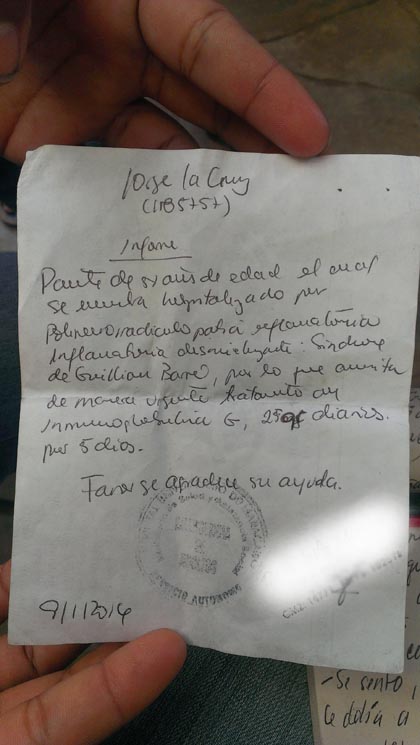 Jorge la Cruz
(1185757)
Informe
Paciente de 51 años de edad el cual
se encuentra hospitalizado por
inflamatória
Inflamatoria desmielizante: Síndrome
de Guillian Barré, por lo que amerita
de manera urgente tratamiento con
Inmunoglobulina G, 25 gr diarios.
por 5 dias.
Favor se agradece su ayuda.
9/1/2014
- Se sento,
le dolía a